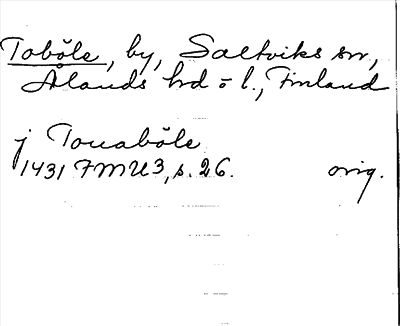 Toböle, by, Saltviks sn,
Ålands hd o l., Finland
j Touaböle
1431 FMU3, s. 26. orig.